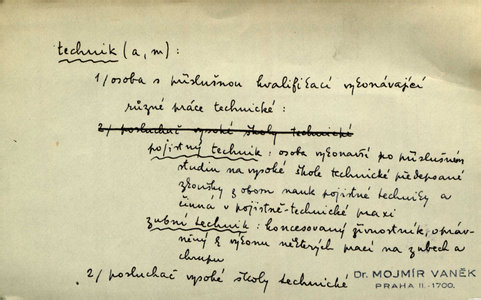 technik (a, m) :
1/ osoba s příslušnou kvalifikací vykonávající
různé práce technické :
2/ posluchač vysoké školy technické
pojistný technik : osoba vykonavší po příslušném
studiu na vysoké škole technické předepsané
zkoušky z oboru nauk pojistné techniky a
činná v pojistně-technické praxi
zubní technik : koncesovaný živnostník, opráv-
něný k výkonu některých prací na zubech a
chrupu
2/ posluchač vysoké školy technické
Dr. MOJMÍR VANĚK
PRAHA II.-1700.